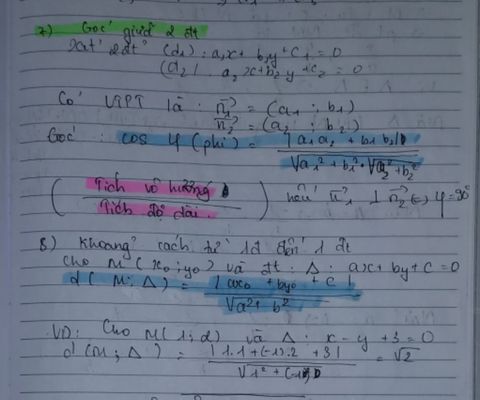 7) Góc giữa 2 đt
Xét 2 đt (d1) : a1x + b1y + c1 = 0
(d2) : a2x + b2y + c2 = 0
Có VTPT là : n1 = (a1 ; b1)
n2 = (a2 ; b2)
Góc : cos φ (phi) = |a1a2 + b1b2| / √a1² + b1² . √a2² + b2²
( Tích vô hướng / Tích độ dài ) nếu n1 ⊥ n2 (=) φ = 90°
8) Khoảng cách từ 1đ đến 1 đt
Cho M (x0 ; y0) và đt : Δ : ax + by + c = 0
d ( M ; Δ ) = | ax0 + by0 + c | / √a² + b²
VD: Cho M (1 ; 2) và Δ : x - y + 3 = 0
d (M ; Δ) = | 1.1 + (-1).2 + 3 | / √1² + (-1)² = √2